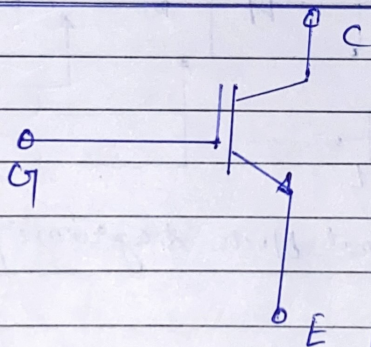 C
G
E